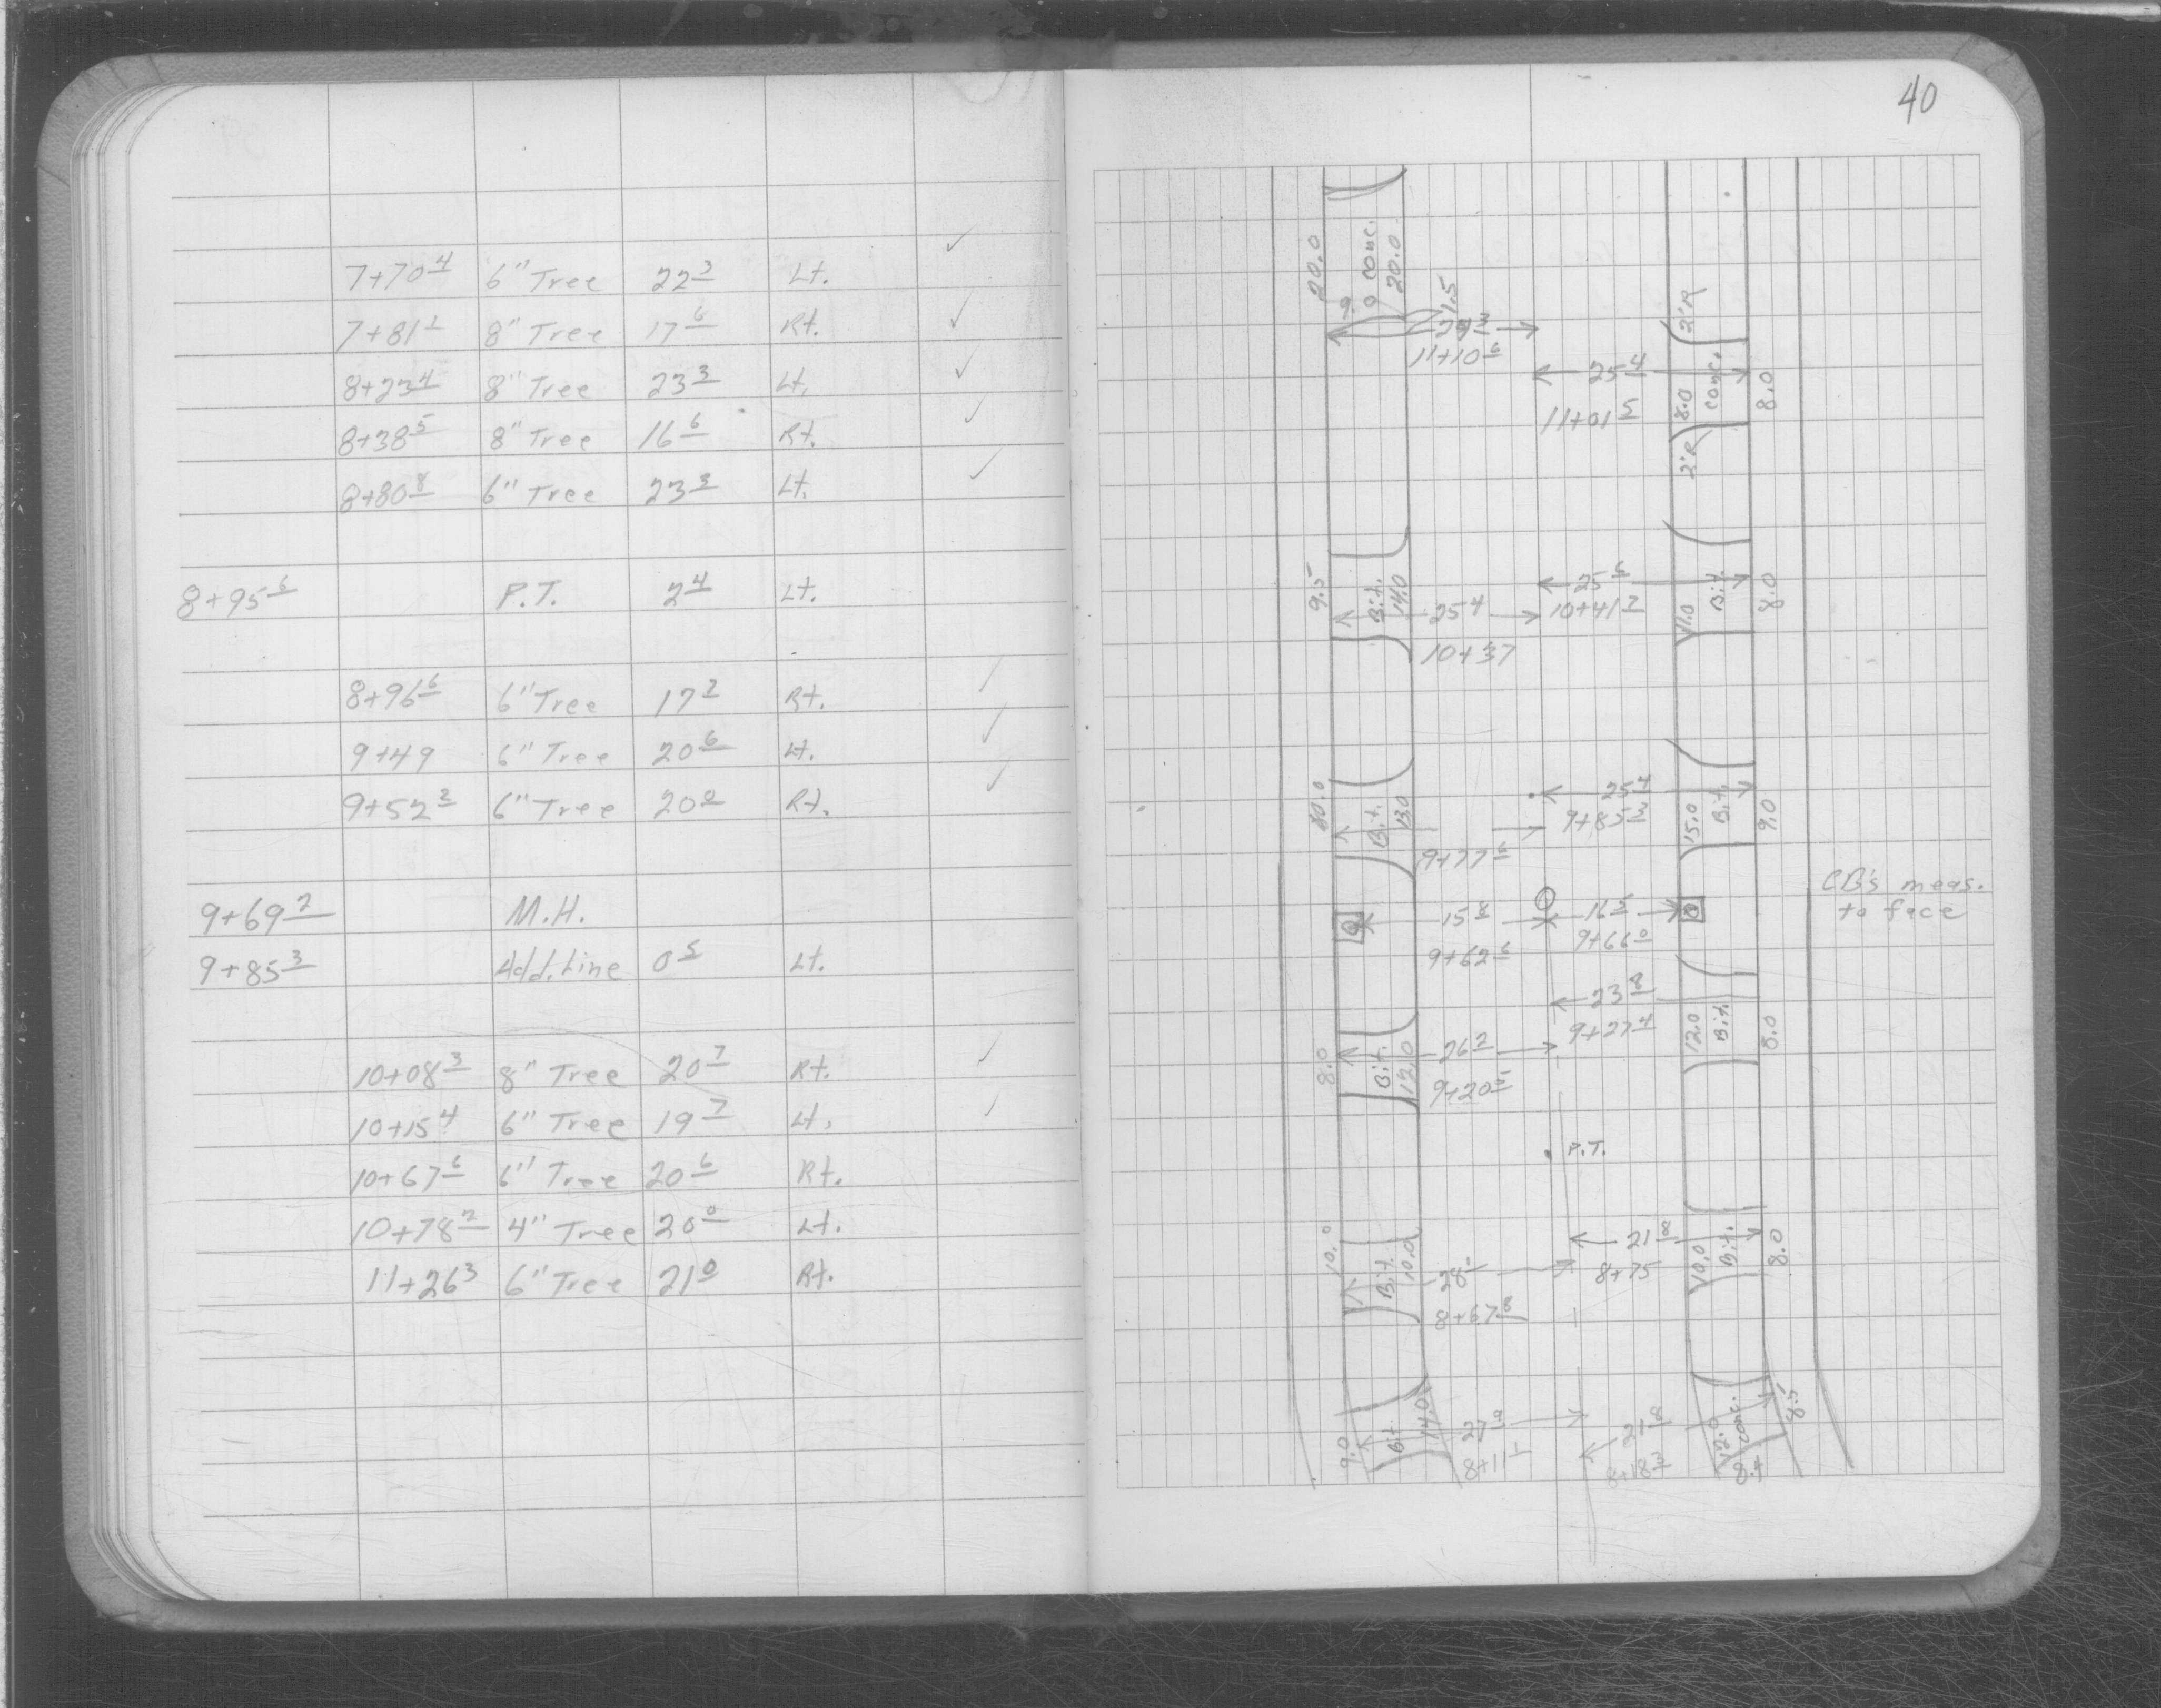 40
7+70 4 6" Tree 22 3 Lt. ✓
7+81 1 8" Tree 17 6 Rt. ✓
8+23 4 8" Tree 23 3 Lt. ✓
8+38 5 8" Tree 16 6 Rt. ✓
8+80 8 6" Tree 23 3 Lt. ✓
8+95 6 P.T. 2 4 Lt.
8+96 6 6" Tree 17 2 Rt. ✓
9+49 6" Tree 20 6 Lt. ✓
9+52 2 6" Tree 20 0 Rt. ✓
9+69 2 M.H.
9+85 3 Add. Line 0 5 Lt.
10+08 3 8" Tree 20 7 Rt. ✓
10+15 4 6" Tree 19 7 Lt. ✓
10+67 6 6" Tree 20 6 Rt.
10+78 2 4" Tree 20 0 Lt.
11+26 3 6" Tree 21 0 Rt.
20.0 conc. 20.0
1.5
11+10 6
2'R
25 4
11+01 5
8.0 conc. 8.0
2'R
9.5 Bit. 14.0
25 4
10+37
25 6
10+41 2
11.0 Bit. 8.0
Bit. 13.0
9+77 6
25 4
9+85 3
15.0 Bit. 9.0
15 8
9+62 6
16 5
9+66 0
CB's meas.
to face
23 8
9+27 4
12.0 Bit. 8.0
8.0 Bit. 12.0
26 2
9+20 5
P.T.
10.0 Bit. 10.0
28 1
8+67 8
21 8
8+75
10.0 Bit. 8.0
9.0 Bit. 14.0
27 9
8+11 1
21 8
8+18 3
12.0 conc. 8.5
8.4